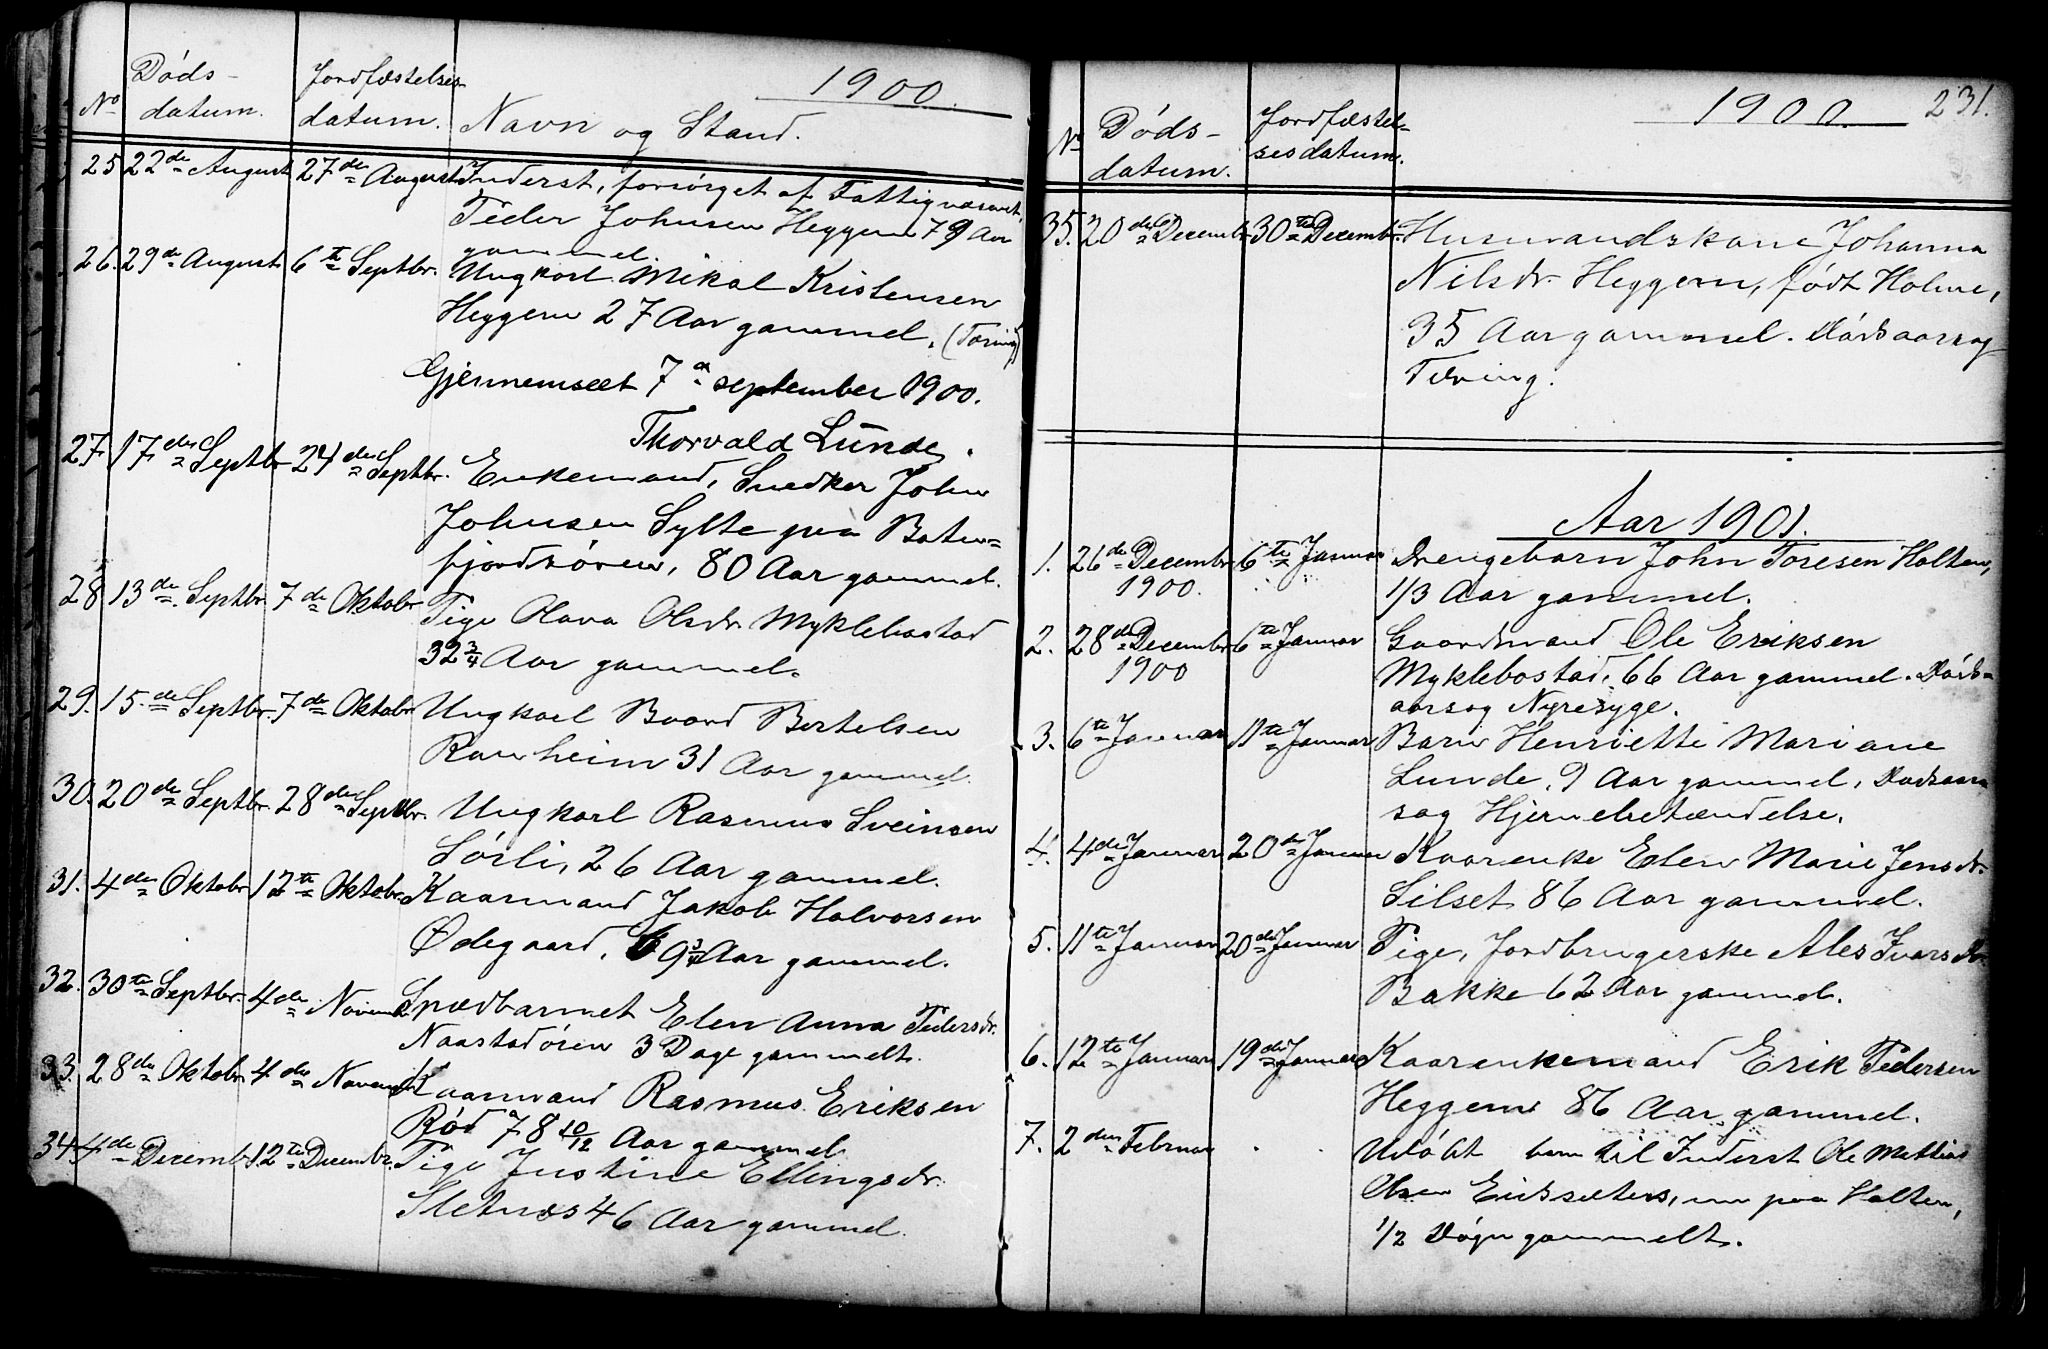 1900.
No Döds- datum. Jordfæstelses- datum. Navn og Stand.
25 22de August 27de August Inderst, forsörget af Fattigvæsenet,
Peder Johnsen Heggem 79 Aar
gammel.
26. 29de August 6te Septbr. Ungkarl Mikal Kristensen
Heggem 27 Aar gammel. (Tæring)
Gjennemseet 7de september 1900.
Thorvald Lunde.
27 17de Septbr 24de Septbr. Enkemand, Snedker John
Johnsen Sylte paa Batn=
fjordsören, 80 Aar gammel.
28 13de Septbr. 7de Oktobr Pige Olava Olsdr. Myklebostad
32 3/4 Aar gammel.
29. 15de Septbr. 7de Oktobr Ungkarl Baard Bertelsen
Ranheim 31 Aar gammel.
30. 20de Septbr. 28de Septbr. Ungkarl Rasmus Sveinsen
Sörli, 26 Aar gammel.
31. 4de Oktobr 12te Oktobr. Kaarmand Jakob Halvorsen
Ødegaard, 69 3/4 Aar gammel.
32. 30te Septbr. 4de Novemb. Spædbarnet Elen Anna Pedersdr.
Naastadören 3 Dage gammelt.
33. 28de Oktobr 4de Novembr Kaarmand Rasmus Eriksen
Röd 78 10/12 Aar gammel
34 4de Decemb. 12te Decembr. Pige Justine Ellingsdr.
Sletnes 46 Aar gammel.
1900. 231.
No Döds- datum. Jordfæstel- sesdatum.
35. 20de Decembr 30te Decembr. Husmandskone Johanna
Nilsdr. Heggem, födt Holme,
35 Aar gammel. Dödsaarsag
Tæring.
Aar 1901.
1. 26de Decembr 6te Januar Drengebarn John Toresen Holten,
1900. 1/3 Aar gammel.
2. 28de Decembr 6te Januar Gaardmand Ole Eriksen
1900 Myklebostad, 66 Aar gammel. Döds-
aarsag Nyresyge.
3. 6te Januar 11te Januar Barn Henriette Mariane
Lunde, 9 Aar gammel, Dødsaar-
sag Hjernebetændelse.
4. 4de Januar 20de Januar Kaarenke Elen Marie Jensdr.
Silset 86 Aar gammel.
5. 11te Januar 20de Januar Pige, Jordbrugerske Ales Ivarsdr.
Bakke 62 Aar gammel.
6. 12te Januar 19de Januar Kaarenkemand Erik Pedersen
Heggem 86 Aar gammel.
7. 2den Februar . . Udöbt barn til Inderst Ole Mattias
Olsen nu paa Holten,
1/2 Dögn gammelt.